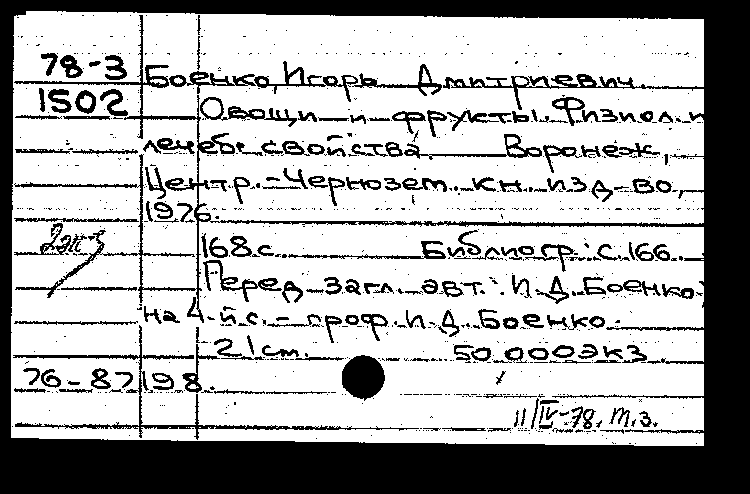 78-3 Боенко, Игорь Дмитриевич.
1502 Овощи и фрукты. Физиол. и
лечебн. свойства. Воронеж,
Центр.-Чернозем. кн. изд-во,
1976.
2эк-з 168 с. Библиогр.: с. 166.
Перед загл. авт.: И. Д. Боенко;
на 4-й с. - проф. И. Д. Боенко.
21 см. 50 000 экз.
76-87198.
11/IV-78. т.з.